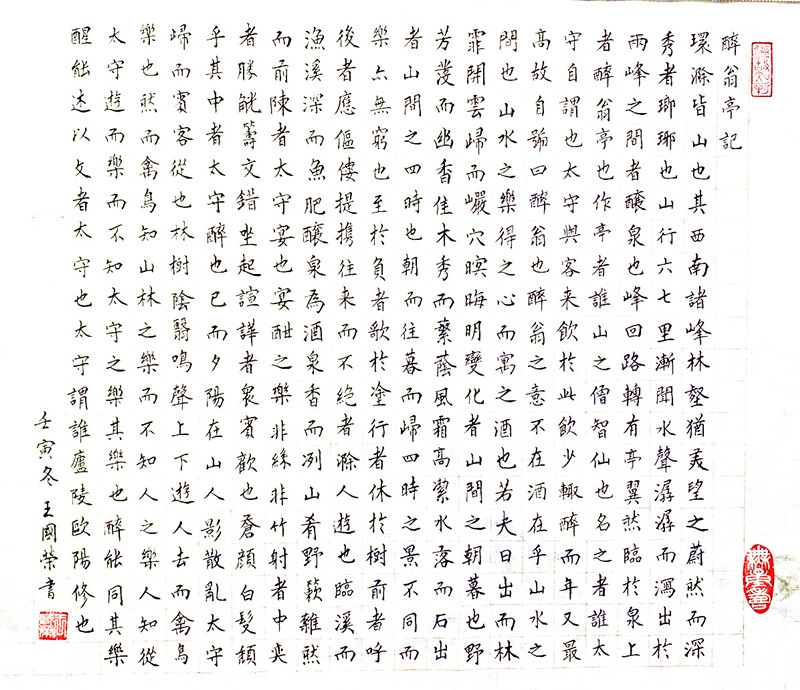 醉翁亭記
環滁皆山也其西南諸峰林壑猶美望之蔚然而深
秀者瑯琊也山行六七里漸聞水聲潺潺而瀉出於
兩峰之間者釀泉也峰回路轉有亭翼然臨於泉上
者醉翁亭也作亭者誰山之僧智仙也名之者誰太
守自謂也太守與客來飲於此飲少輒醉而年又最
高故自號曰醉翁也醉翁之意不在酒在乎山水之
間也山水之樂得之心而寓之酒也若夫日出而林
霏開雲歸而巖穴暝晦明變化者山間之朝暮也野
芳發而幽香佳木秀而繁蔭風霜高潔水落而石出
者山間之四時也朝而往暮而歸四時之景不同而
樂亦無窮也至於負者歌於塗行者休於樹前者呼
後者應傴僂提攜往來而不絕者滁人遊也臨溪而
漁溪深而魚肥釀泉為酒泉香而冽山肴野蔌雜然
而前陳者太守宴也宴酣之樂非絲非竹射者中奕
者勝觥籌交錯坐起諠譁者眾賓歡也蒼顏白髮頹
乎其中者太守醉也已而夕陽在山人影散亂太守
歸而賓客從也林樹陰翳鳴聲上下遊人去而禽鳥
樂也然而禽鳥知山林之樂而不知人之樂人知從
太守遊而樂而不知太守之樂其樂也醉能同其樂
醒能述以文者太守也太守謂誰廬陵歐陽修也
壬寅冬王國榮書